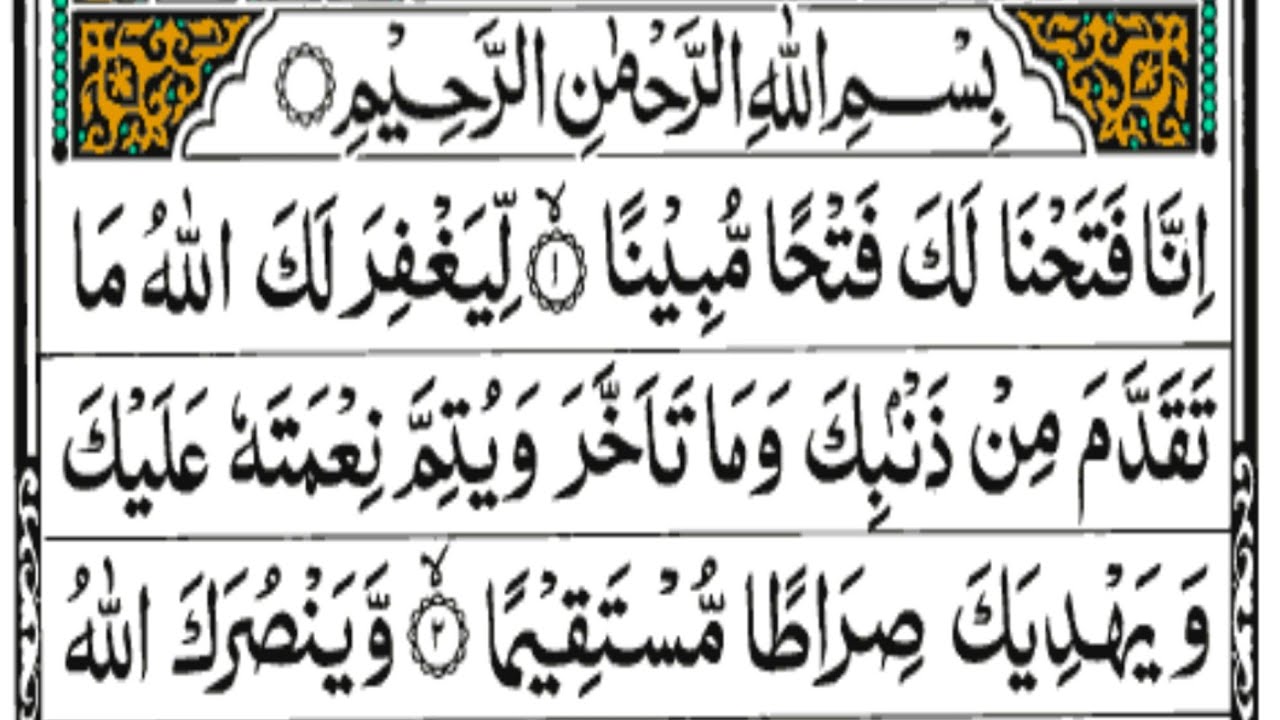 بِسْمِ اللّٰهِ الرَّحْمٰنِ الرَّحِيْمِ ۝
اِنَّا فَتَحْنَا لَكَ فَتْحًا مُّبِيْنًا ۙ‏﴿۱﴾ لِّيَغْفِرَ لَكَ اللّٰهُ مَا
تَقَدَّمَ مِنْ ذَنْۢبِكَ وَمَا تَاَخَّرَ وَيُتِمَّ نِعْمَتَهٗ عَلَيْكَ
وَ يَهْدِيَكَ صِرَاطًا مُّسْتَقِيْمًا ۙ‏﴿۲﴾ وَّيَنْصُرَكَ اللّٰهُ